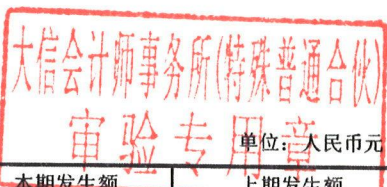 大信会计师事务所(特殊普通合伙)
审验专用章
单位：人民币元
本期发生额 上期发生额